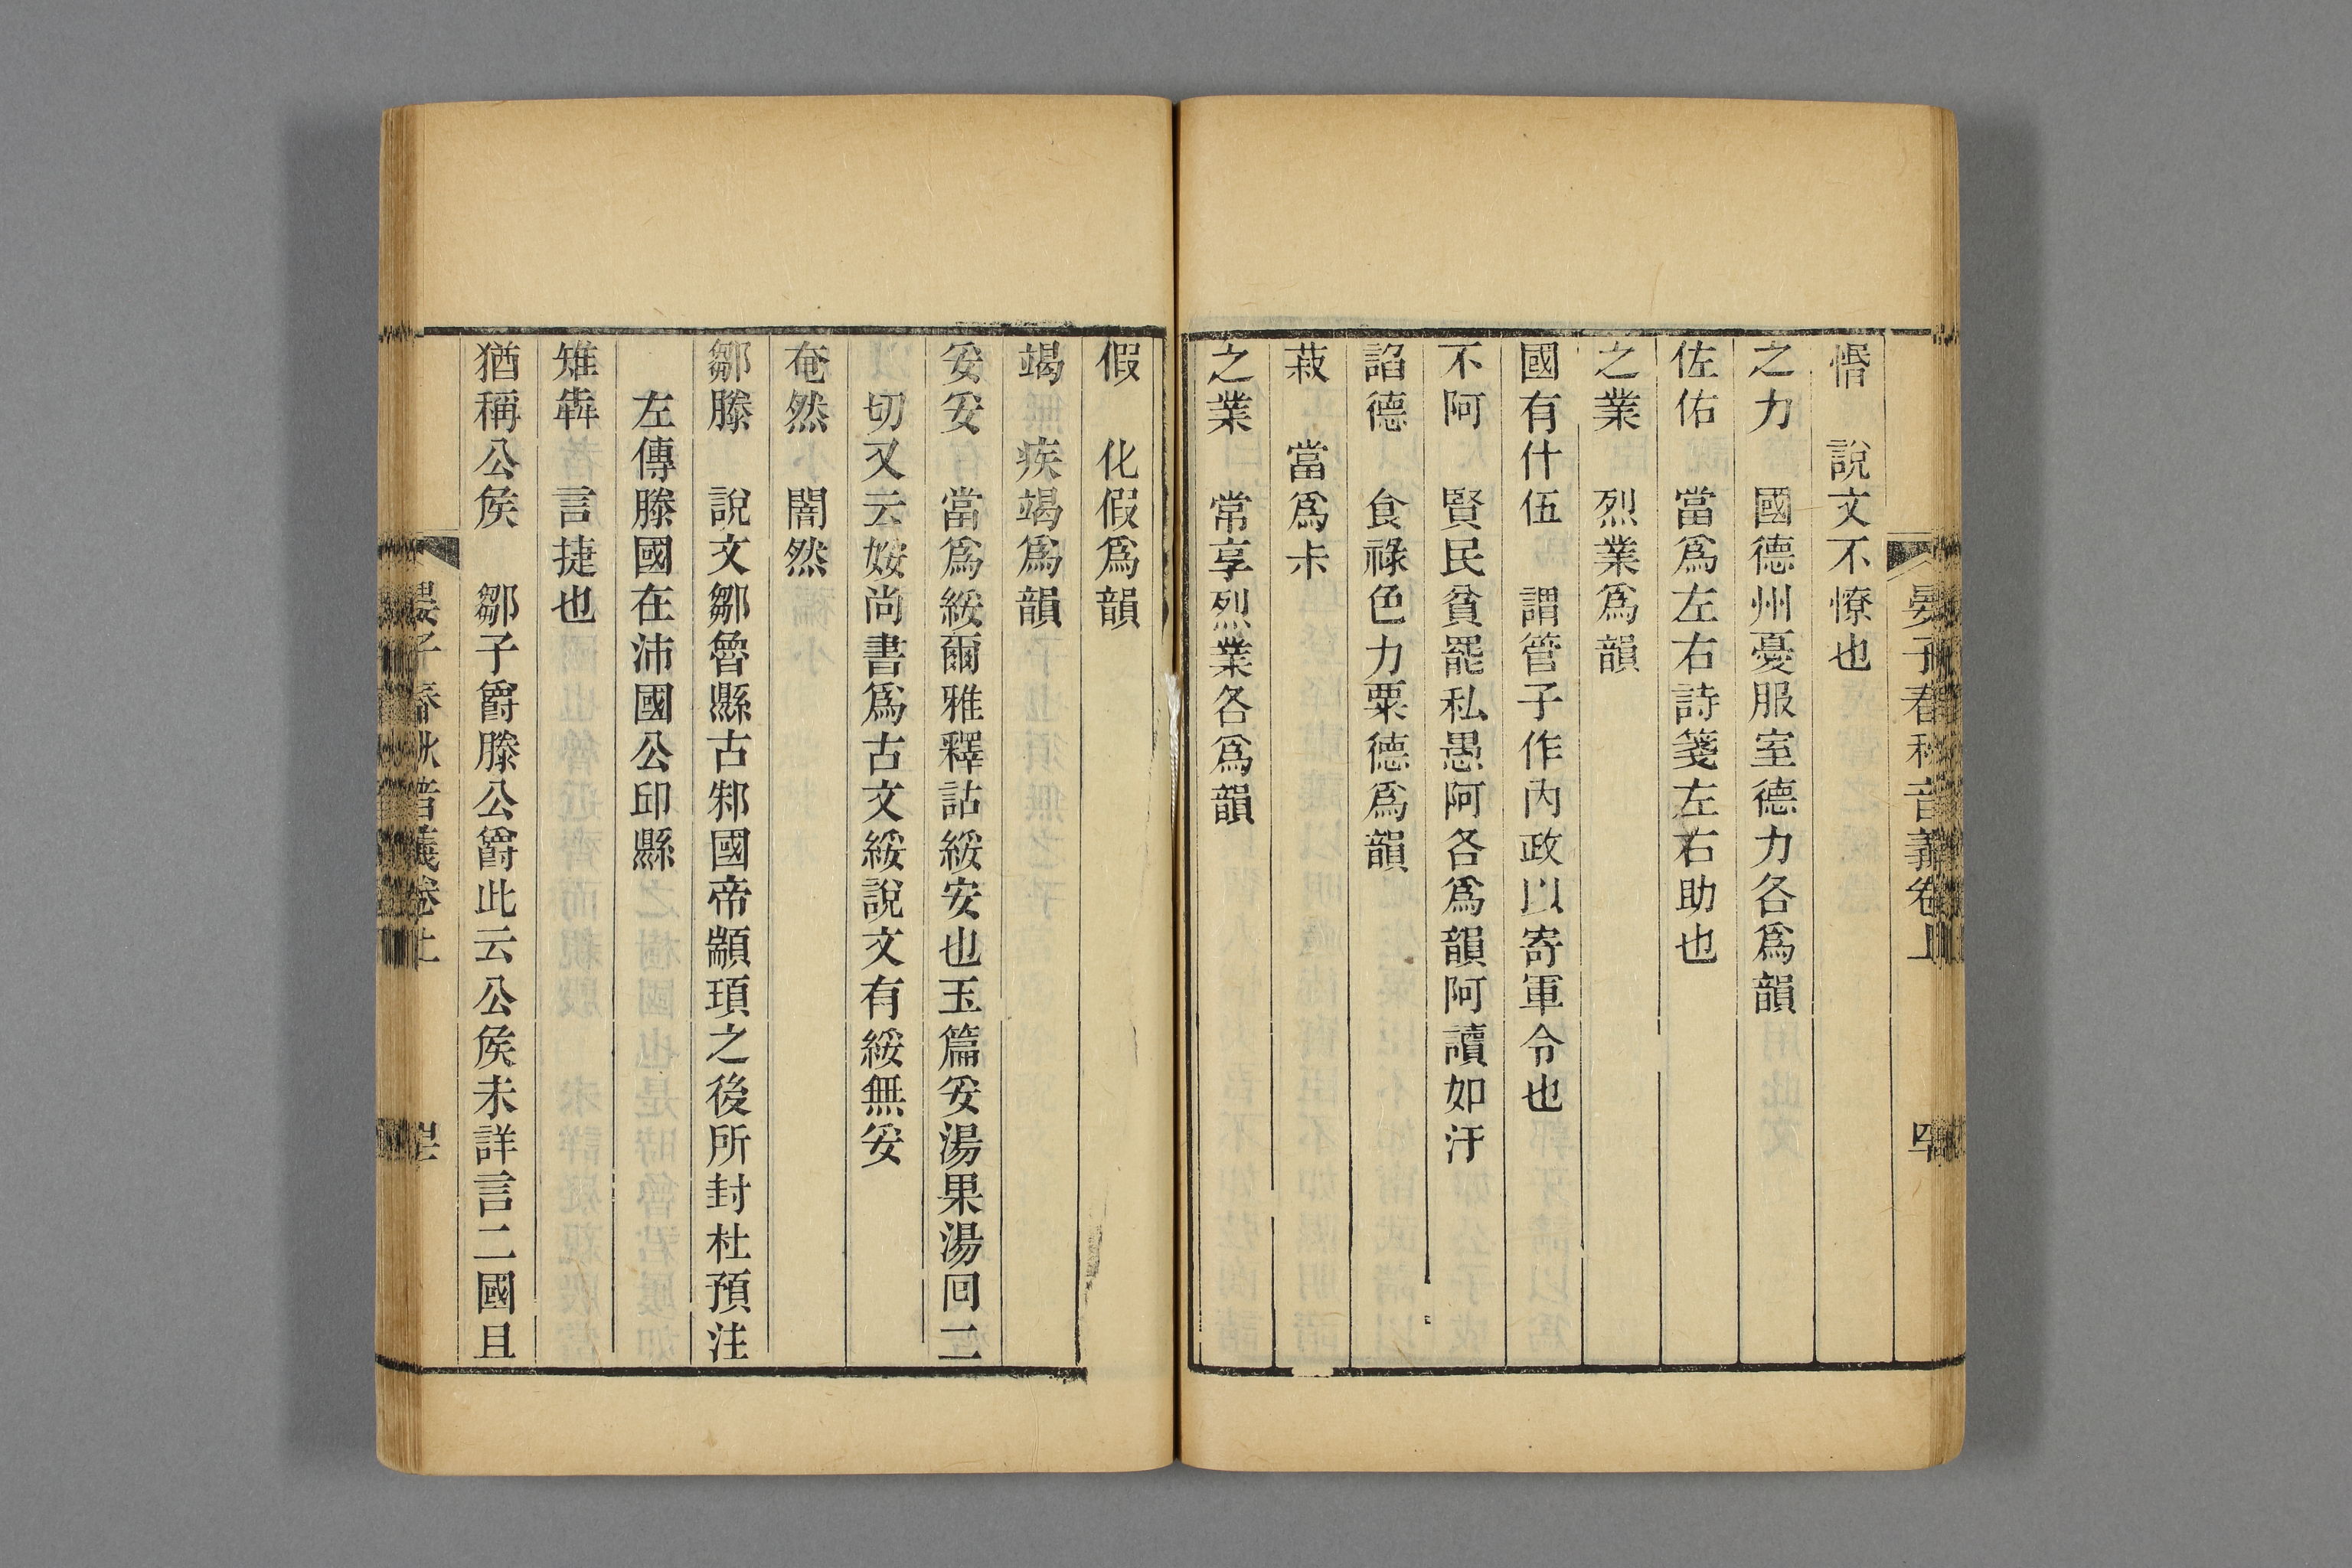 晏子春秋音義卷上
惛 說文不憭也
之力 國德州憂服室德力各爲韻
佐佑 當爲左右詩箋左右助也
之業 烈業爲韻
國有什伍 謂管子作內政以寄軍令也
不阿 賢民貧罷私愚阿各爲韻阿讀如汙
諂德 食祿色力粟德爲韻
菽 當爲尗
之業 常享烈業各爲韻
假 化假爲韻
竭 疾竭爲韻
妥妥 當爲綏爾雅釋詁綏安也玉篇妥湯果湯回二
切又云㛂尚書爲古文綏說文有綏無妥
奄然 闇然
鄒滕 說文鄒魯縣古邾國帝顓頊之後所封杜預注
左傳滕國在沛國公邱縣
雉犇 言捷也
猶稱公侯 鄒子爵滕公爵此云公侯未詳言二國且
晏子春秋音義卷上